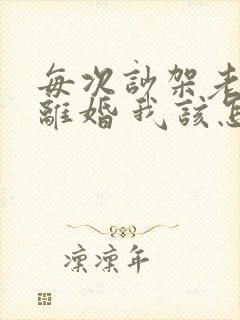 每次訬架老
離婚我該怎
凜凜年